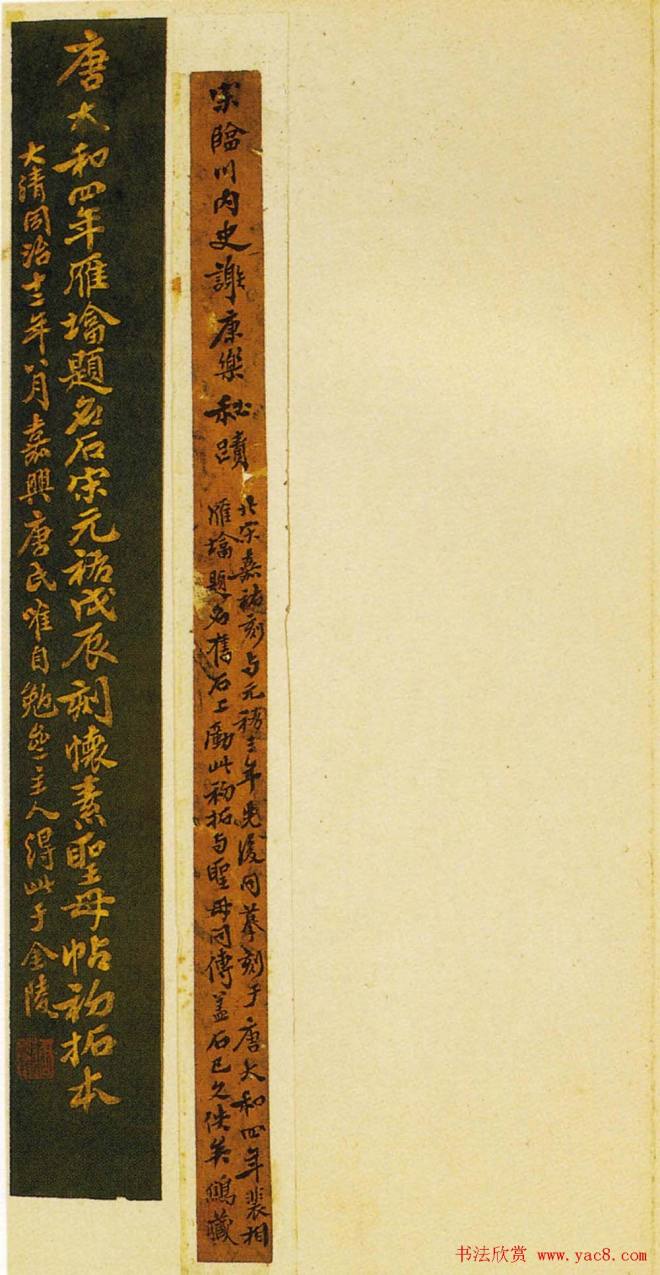 宋臨川内史謝康樂秘蹟
北宋嘉祐刻与元祐三年先後同摹刻于唐大和四年裴相
雁墖題名舊石上此初拓与聖母同傳蓋石已久佚矣藏
唐大和四年雁墖題名石宋元祐戊辰刻懷素聖母帖初拓本
大清同治十二年八月嘉興唐氏唯自勉盦主人得此于金陵
书法欣赏 www.yac8.com